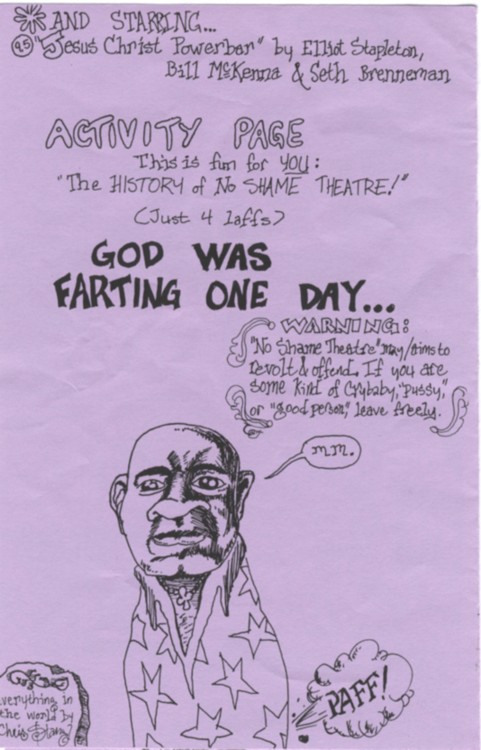 AND STARRING...
95 "Jesus Christ Powerbar" by Elliot Stapleton,
Bill McKenna & Seth Brenneman
ACTIVITY PAGE
This is fun for YOU:
"The HISTORY of No SHAME THEATRE!"
(Just 4 laffs)
GOD WAS
FARTING ONE DAY...
WARNING:
"No Shame Theatre" may/aims to
revolt & offend. If you are
some kind of Crybaby, "pussy,"
or "good person," leave freely.
m.m.
PAFF!
verything in
the world by
Chris